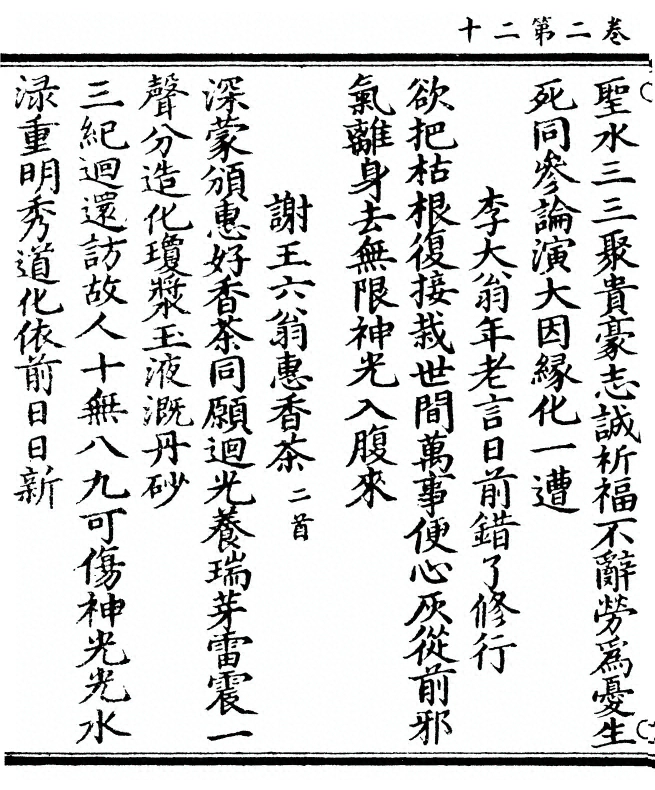 卷二第二十
聖水三三聚貴豪志誠祈福不辭勞爲憂生
死同參論演大因緣化一遭
李大翁年老言日前錯了修行
欲把枯根復接栽世間萬事便心灰從前邪
氣離身去無限神光入腹來
謝王六翁惠香茶二首
深蒙頒惠好香茶同願迴光養瑞芽雷震一
聲分造化瓊漿玉液溉丹砂
三紀迴還訪故人十無八九可傷神光光水
淥重明秀道化依前日日新